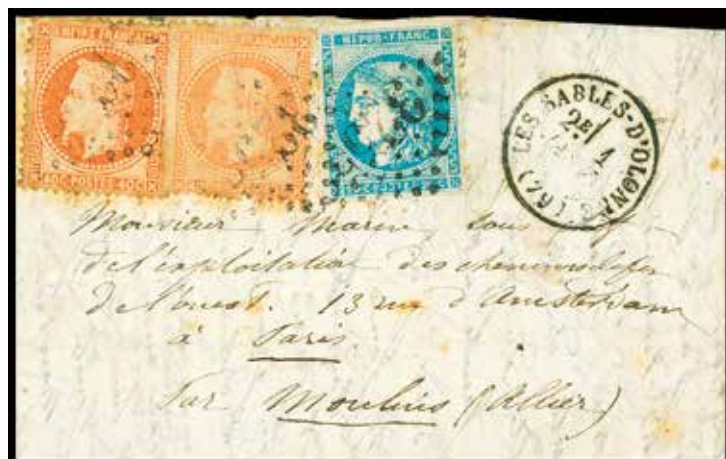 EMPIRE FRANÇAIS
EMPIRE FRANÇAIS
REPUB · FRANC
40C POSTES 40C
LES SABLES-D'OLONNE
2E 1
(79)
Monsieur Marin sous
de l'exploitation des chemins de fer
de l'ouest. 13 rue d'Amsterdam
à Paris
Par Moulins (Allier)